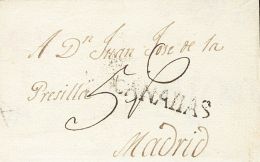 A Dn Juan Jose de la
Presilla
CANARIAS
Madrid